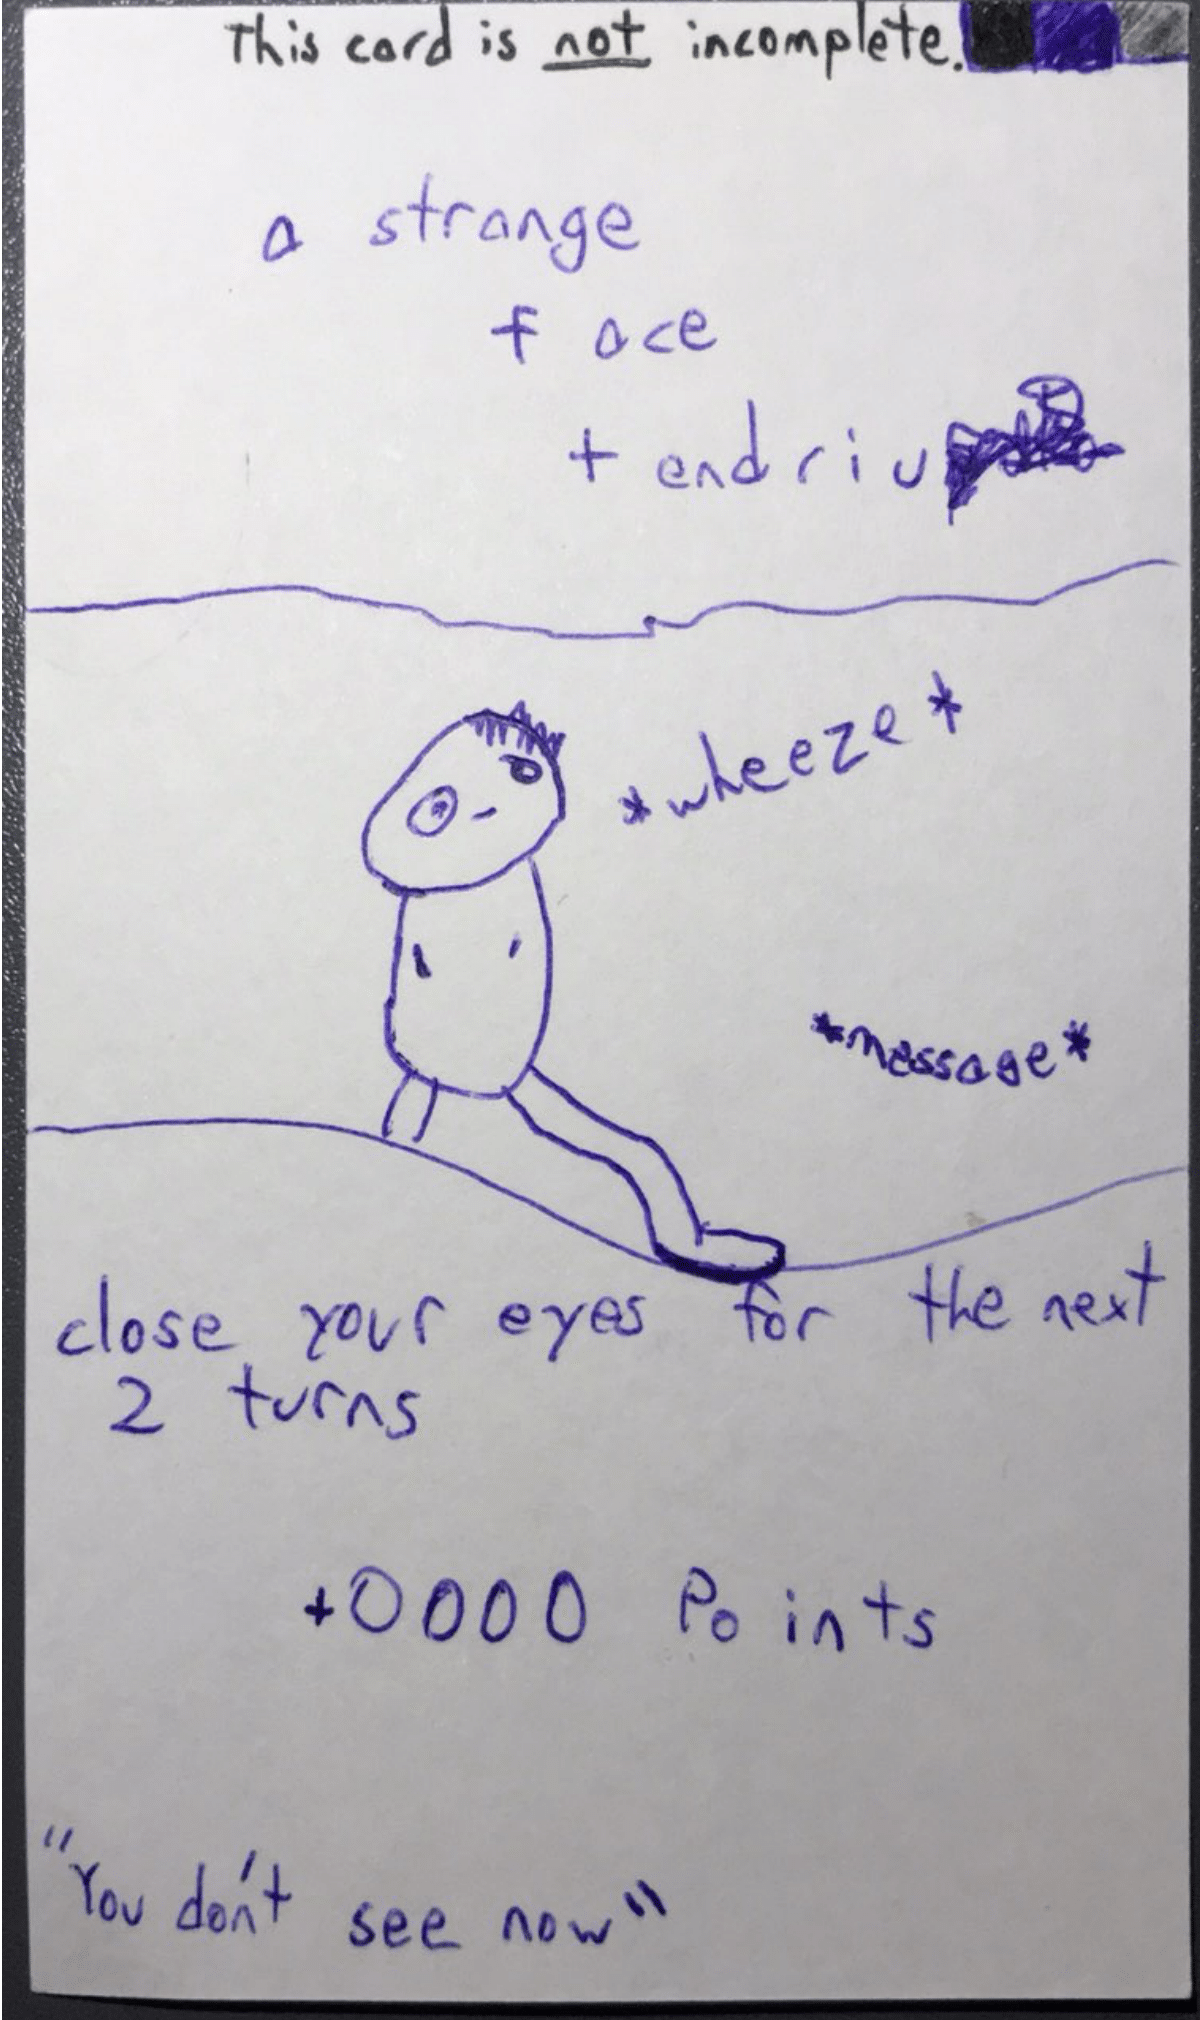 This card is not incomplete.
a strange
f ace
tendriu
*wheeze*
*message*
close your eyes for the next
2 turns
+0000 Points
"You don't see now"